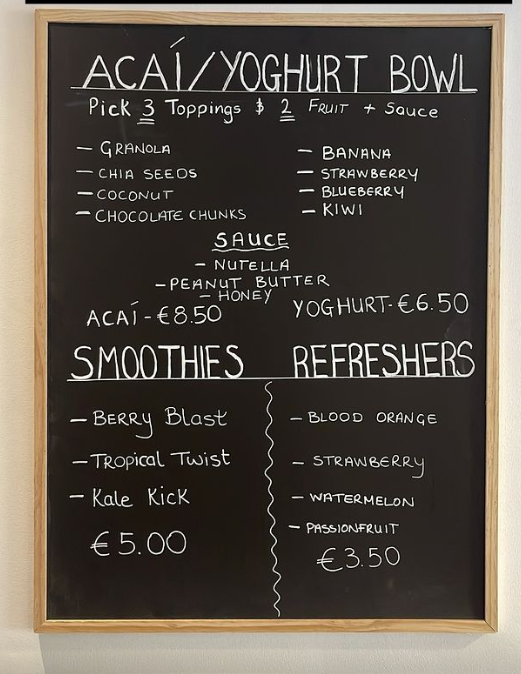 ACAÍ/YOGHURT BOWL
Pick 3 Toppings $ 2 FRUIT + Sauce
- GRANOLA
- CHIA SEEDS
- COCONUT
- CHOCOLATE CHUNKS
- BANANA
- STRAWBERRY
- BLUEBERRY
- KIWI
SAUCE
- NUTELLA
- PEANUT BUTTER
- HONEY
ACAÍ - €8.50
YOGHURT - €6.50
SMOOTHIES
- BERRY BLAST
- TROPICAL TWIST
- KALE KICK
€5.00
REFRESHERS
- BLOOD ORANGE
- STRAWBERRY
- WATERMELON
- PASSIONFRUIT
€3.50